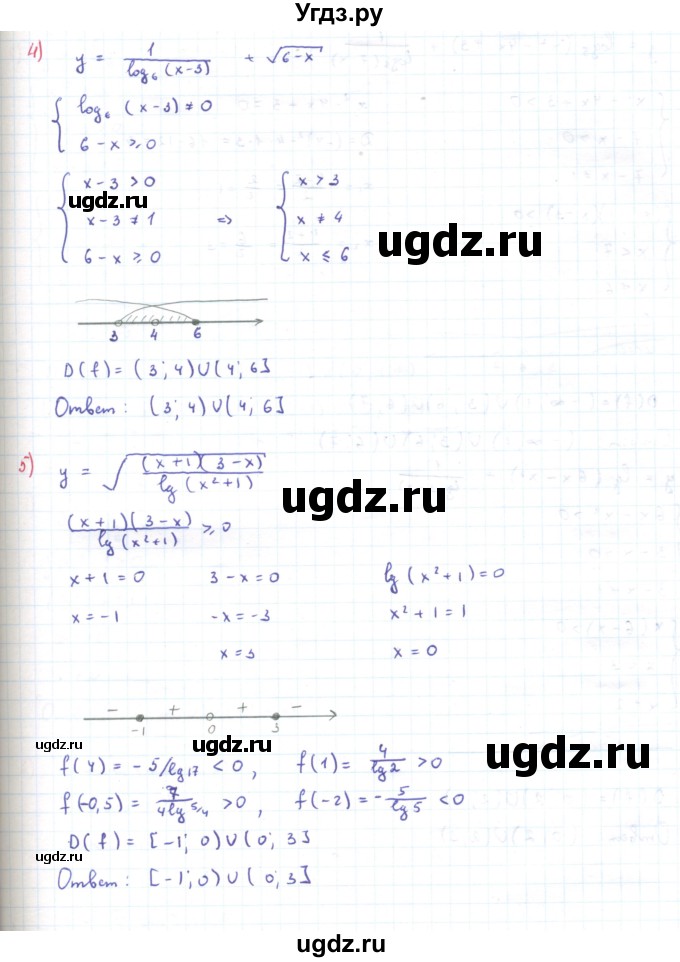 Угдз.ру
4) y = 1/log₆(x-3) + √(6-x)
{ log₆(x-3) ≠ 0
6-x ≥ 0
{ x-3 > 0
x-3 ≠ 1
6-x ≥ 0
⇒
{ x > 3
x ≠ 4
x ≤ 6
ugdz.ru
ugdz.ru
3 4 6
D(f) = (3; 4)∪(4; 6]
Ответ: (3; 4)∪(4; 6]
5) y = √((x+1)(3-x)/lg(x²+1))
ugdz.ru
(x+1)(3-x)/lg(x²+1) ≥ 0
x+1=0 3-x=0 lg(x²+1)=0
x=-1 -x=-3 x²+1=1
x=3 x=0
- + + -
-1 0 3
ugdz.ru
ugdz.ru
f(4) = -5/lg17 < 0, f(1) = 4/lg2 > 0
f(-0,5) = 7/4lg5/4 > 0, f(-2) = -5/lg5 < 0
D(f) = [-1; 0)∪(0; 3]
Ответ: [-1; 0)∪(0; 3]
ugdz.ru
ugdz.ru